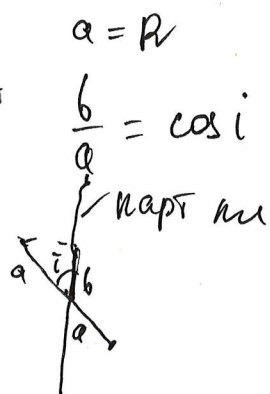 a = R
b/a = cos i
карт пл
i
a
b
a